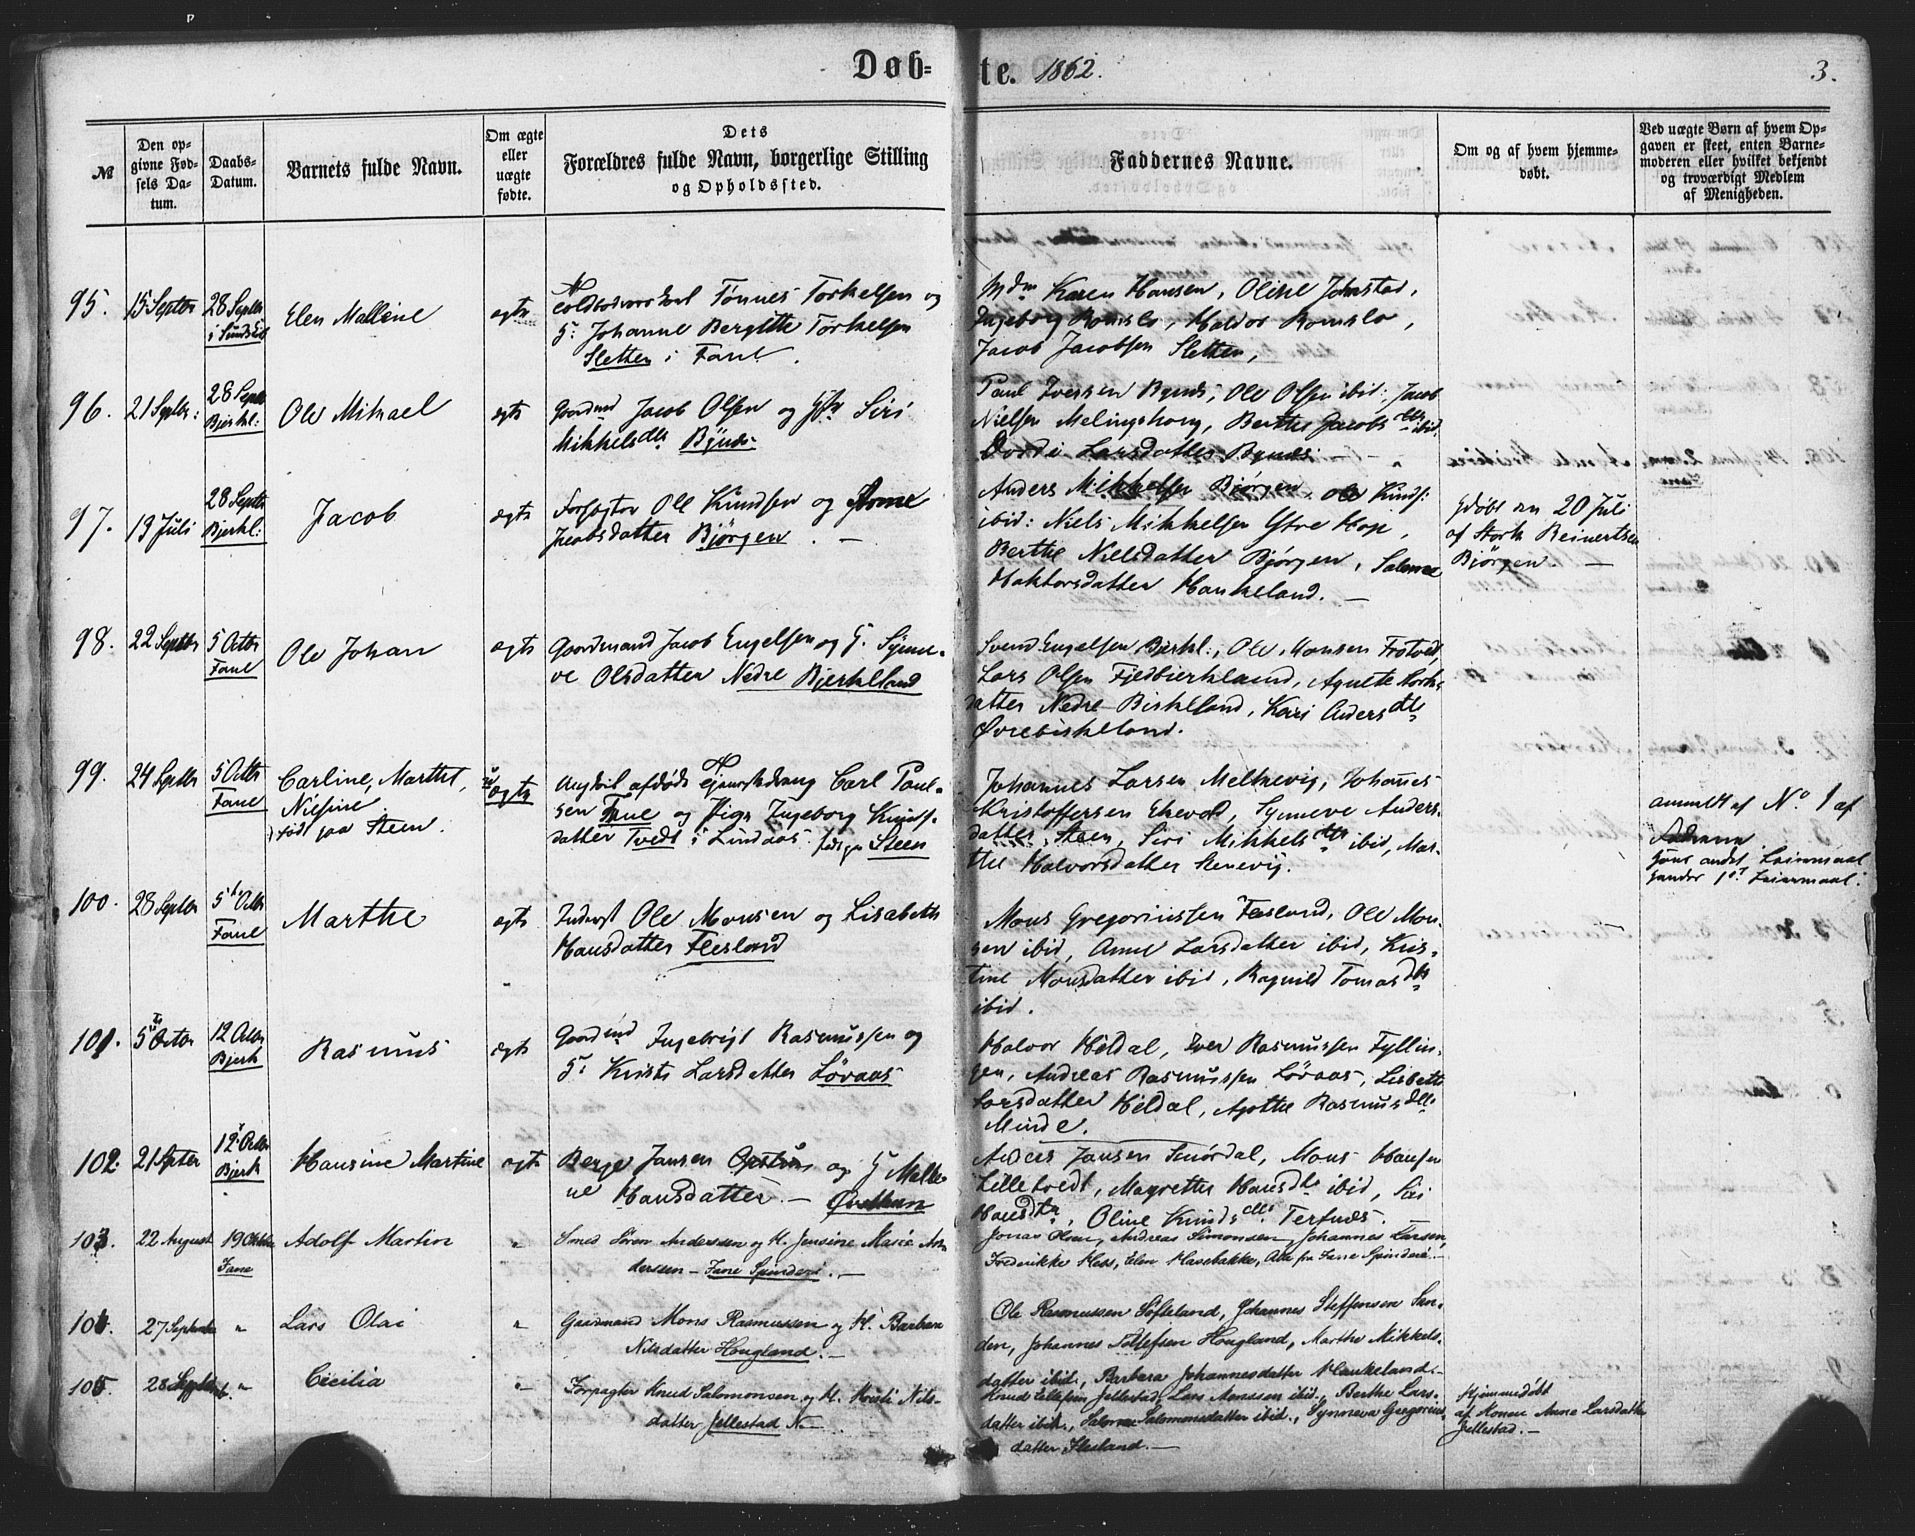 Døb=
te. 1862.
3.
№
Den op-
givne Fød-
sels Da-
tum.
Daabs-
Datum.
Barnets fulde Navn.
Om ægte
eller
uægte
fødte.
Dets
Forældres fulde Navn, borgerlige Stilling
og Opholdssted.
Faddernes Navne.
Om og af hvem hjemme-
døbt.
Ved uægte Børn af hvem Op-
gaven er skeet, enten Barne-
moderen eller hvilket bekjendt
og troværdigt Medlem
af Menigheden.
95. 15 Septbr 28 Septbr Elen Malline ægte
Tønnes Torkelsen og
G: Johanne Bergitte Torkelsen
Sletten i Fane.
Mdm Karen Hansen, Oline Johnstad,
Ingeborg Romslo, Haldor Romslo,
Jacob Jacobsen Sletten,
96. 21 Septbr: 28 Septbr Bjerkl: Ole Mikael ægte
Gaardmd Jacob Olsen og Siri
Mikkelsdtr Bynæs
Paul Iversen Bynæs, Ole Olsen ibid: Jacob
Nielsen Melingshoug, Berthe Jacobsdtr ibid,
Dordei Larsdatter Bynæs. —
97. 13 Juli 28 Septbr Bjerkl: Jacob ægte
Forpagter Ole Knudsen og Anne
Jacobsdatter Bjørgen. —
Anders Mikkelsen Bjørgen, Ole Knuds:
ibid: Niels Mikkelsen Ystre Hop,
Berthe Nielsdatter Bjørgen, Salome
Haktorsdatter Haukeland. —
Gdøbt den 20 Juli
af Stork Reinertsen
Bjørgen. —
98. 22 Septbr 5 Octbr Fane Ole Johan ægte
Gaardmand Jacob Engelsen og G. Synne-
ve Olsdatter Nedre Bjerkeland
Svend Engelsen Bjerkl:, Ole Monsen Frotvedt,
Lars Olsen Fjeldbierkland, Agnete
datter Nedre Birkeland, Kari Andersdtr
Øvrebirkeland.
99. 24 Septbr 5 Octbr Fane Carline, Marthe,
Nilsine
født paa Steen.
uægte
Angivel. afdøde Carl Paul-
sen Fane og Pige Ingeborg Knuds-
datter Tvedt i Lindaas. Steen
Johannes Larsen Melkevig, Johannes
Kristoffersen Ekevold, Synneve Anders-
datter Steen, Siri Mikkelsdtr ibid, Mar-
the Halvorsdatter Stenevig.
anmeldt af No. 1 af
hans andet Leiermaal
hendes 1st Leiermaal.
100. 28 Septbr 5te Octbr Fane Marthe ægte
Inderst Ole Monsen og Lisabeth
Hansdatter Flesland
Mons Gregoriussen Flesland, Ole Mon-
sen ibid, Anne Larsdatter ibid, Kris-
tine Monsdatter ibid, Ragnild Tomasdtr
ibid.
101. 5te Octbr 12 Octbr Bjerk Rasmus ægte
Gaardmd Ingebrigt Rasmussen og
Gr Kristi Larsdatter Løvaas
Halvor Héldal, Iver Rasmussen Fyllin-
gen, Andreas Rasmussen Løvaas, Lisbeth
Larsdatter Héldal, Agathe Rasmusdtr
Minde.
102. 21 Septbr 12 Octbr Bjerk Hansine Martine ægte
Berge Jansen og G Malle-
ne Hansdatter. —
Anders Jansen Smørdal, Mons Hansen
Lilletvedt, Magrethe Hansdtr ibid, Siri
Hansdtr, Oline Knudsdtr Tertnes.
103. 22 August 19 Oktober Fane Adolf Martin "
Smed Søren Anderssen og H. Jensine Marie An-
derssen — Fane Spinderi. —
Jonas Olsen, Andreas Simonsen, Johannes Larsen,
Frederikke Hess, Elen Hasebakke, Alle fra Fane Spinderi. —
104. 27 September " Lars Olai "
Gaardmand Mons Rasmussen og H. Barbara
Nilsdatter Hougland. —
Ole Rasmussen Søfteland, Johannes Steffensen San-
den, Johannes Tollefsen Hougland, Marthe Mikkels-
datter ibid., Barbara Johannesdatter Haukeland.
105. 28 Septbr. " Cicilia "
Forpagter Knud Salomonsen og H. Kristi Nils-
datter Jellestad N. —
Knud Ellefsen Jellestad, Lars Monssen ibid., Berthe Lars-
datter ibid., Salome Salomonsdatter ibid., Synneva Gregorius-
datter Flesland. —
Hjemmedøbt
af Konen Anna Larsdatter
Jellestad. —